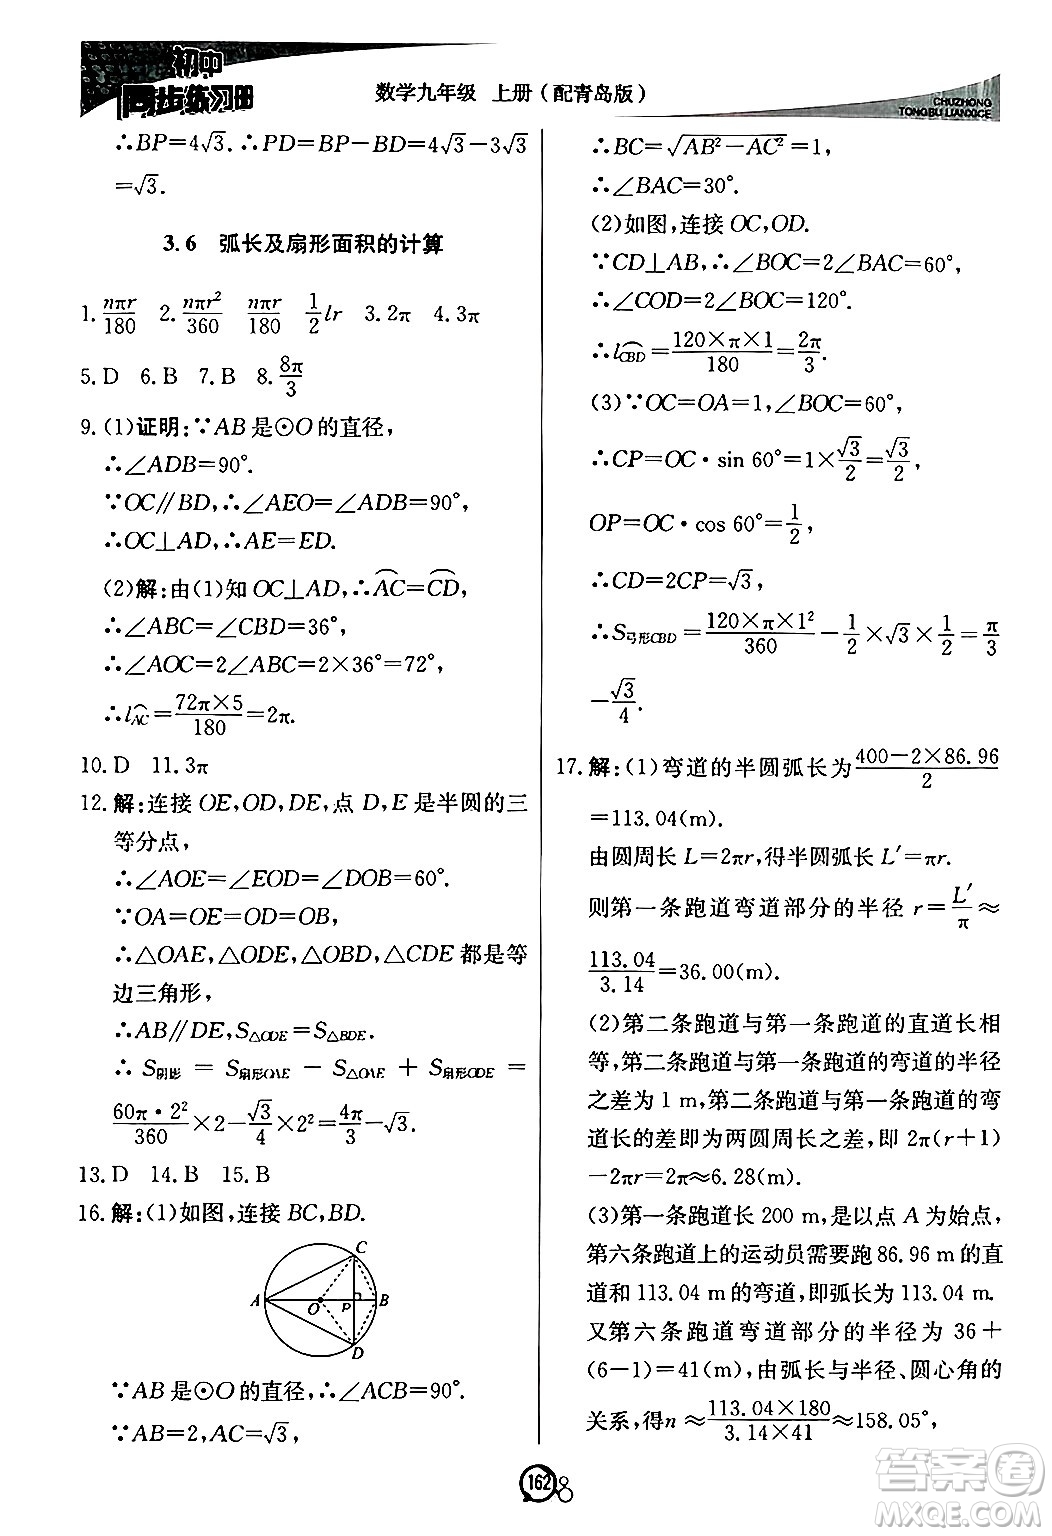 初中
同步练习册
数学九年级 上册(配青岛版)
CHUZHONG
TONGBU LIANXICE
∴BP=4√3.∴PD=BP-BD=4√3-3√3
=√3.
3.6 弧长及扇形面积的计算
1. nπr/180 2. nπr²/360 nπr/180 1/2 lr 3.2π 4.3π
5.D 6.B 7.B 8. 8π/3
9.(1)证明:∵AB是⊙O的直径,
∴∠ADB=90°.
∵OC∥BD,∴∠AEO=∠ADB=90°,
∴OC⊥AD,∴AE=ED.
(2)解:由(1)知OC⊥AD,∴⌒AC=⌒CD,
∴∠ABC=∠CBD=36°,
∴∠AOC=2∠ABC=2×36°=72°,
∴l⌒AC=72π×5/180=2π.
10.D 11.3π
12.解:连接OE,OD,DE,点D,E是半圆的三
等分点,
∴∠AOE=∠EOD=∠DOB=60°.
∵OA=OE=OD=OB,
∴△OAE,△ODE,△OBD,△CDE都是等
边三角形,
∴AB∥DE,S△ODE=S△BDE.
∴S阴影=S扇形OAE-S△OAE+S扇形ODE=
60π·2²/360×2-√3/4×2²=4π/3-√3.
13.D 14.B 15.B
16.解:(1)如图,连接BC,BD.
C
A O P B
D
∵AB是⊙O的直径,∴∠ACB=90°.
∵AB=2,AC=√3,
∴BC=√(AB²-AC²)=1,
∴∠BAC=30°.
(2)如图,连接OC,OD.
∵CD⊥AB,∴∠BOC=2∠BAC=60°,
∴∠COD=2∠BOC=120°.
∴l⌒CBD=120×π×1/180=2π/3.
(3)∵OC=OA=1,∠BOC=60°,
∴CP=OC·sin 60°=1×√3/2=√3/2,
OP=OC·cos 60°=1/2,
∴CD=2CP=√3,
∴S弓形CBD=120×π×1²/360-1/2×√3×1/2=π/3
-√3/4.
17.解:(1)弯道的半圆弧长为(400-2×86.96)/2
=113.04(m).
由圆周长L=2πr,得半圆弧长L′=πr.
则第一条跑道弯道部分的半径r=L′/π≈
113.04/3.14=36.00(m).
(2)第二条跑道与第一条跑道的直道长相
等,第二条跑道与第一条跑道的弯道的半径
之差为1 m,第二条跑道与第一条跑道的弯
道长的差即为两圆周长之差,即2π(r+1)
-2πr=2π≈6.28(m).
(3)第一条跑道长200 m,是以点A为始点,
第六条跑道上的运动员需要跑86.96 m的直
道和113.04 m的弯道,即弧长为113.04 m.
又第六条跑道弯道部分的半径为36+
(6-1)=41(m),由弧长与半径、圆心角的
关系,得n≈113.04×180/3.14×41≈158.05°,
162
答案圈
MXQE.COM